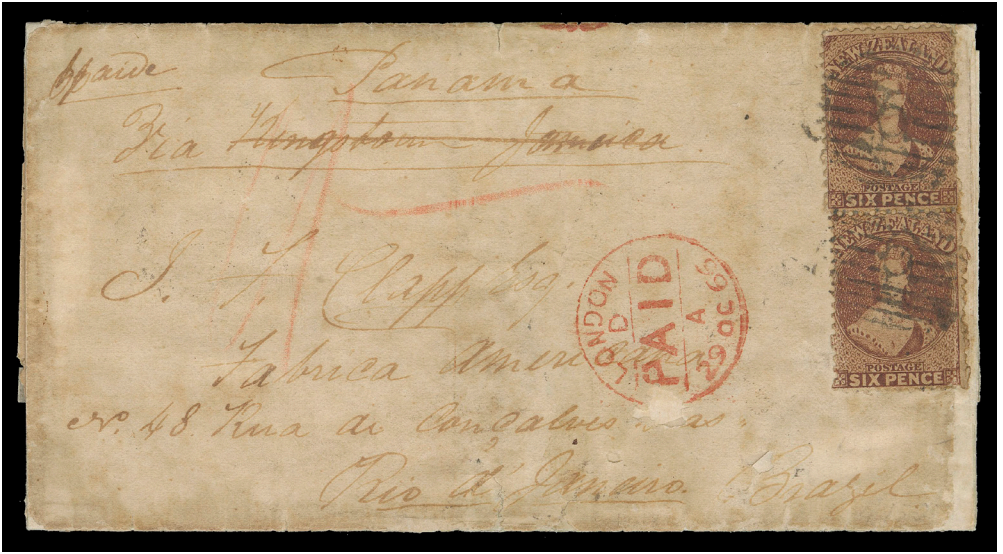 Panama
Via Kingston Jamaica
J. F. Clapp Esq.
Fabrica Americana
No. 48 Rua de Gonçalves Dias
Rio de Janeiro. Brazil
LONDON
D
PAID
A
29 OC 69
NEW ZEALAND
POSTAGE
SIX PENCE
NEW ZEALAND
POSTAGE
SIX PENCE